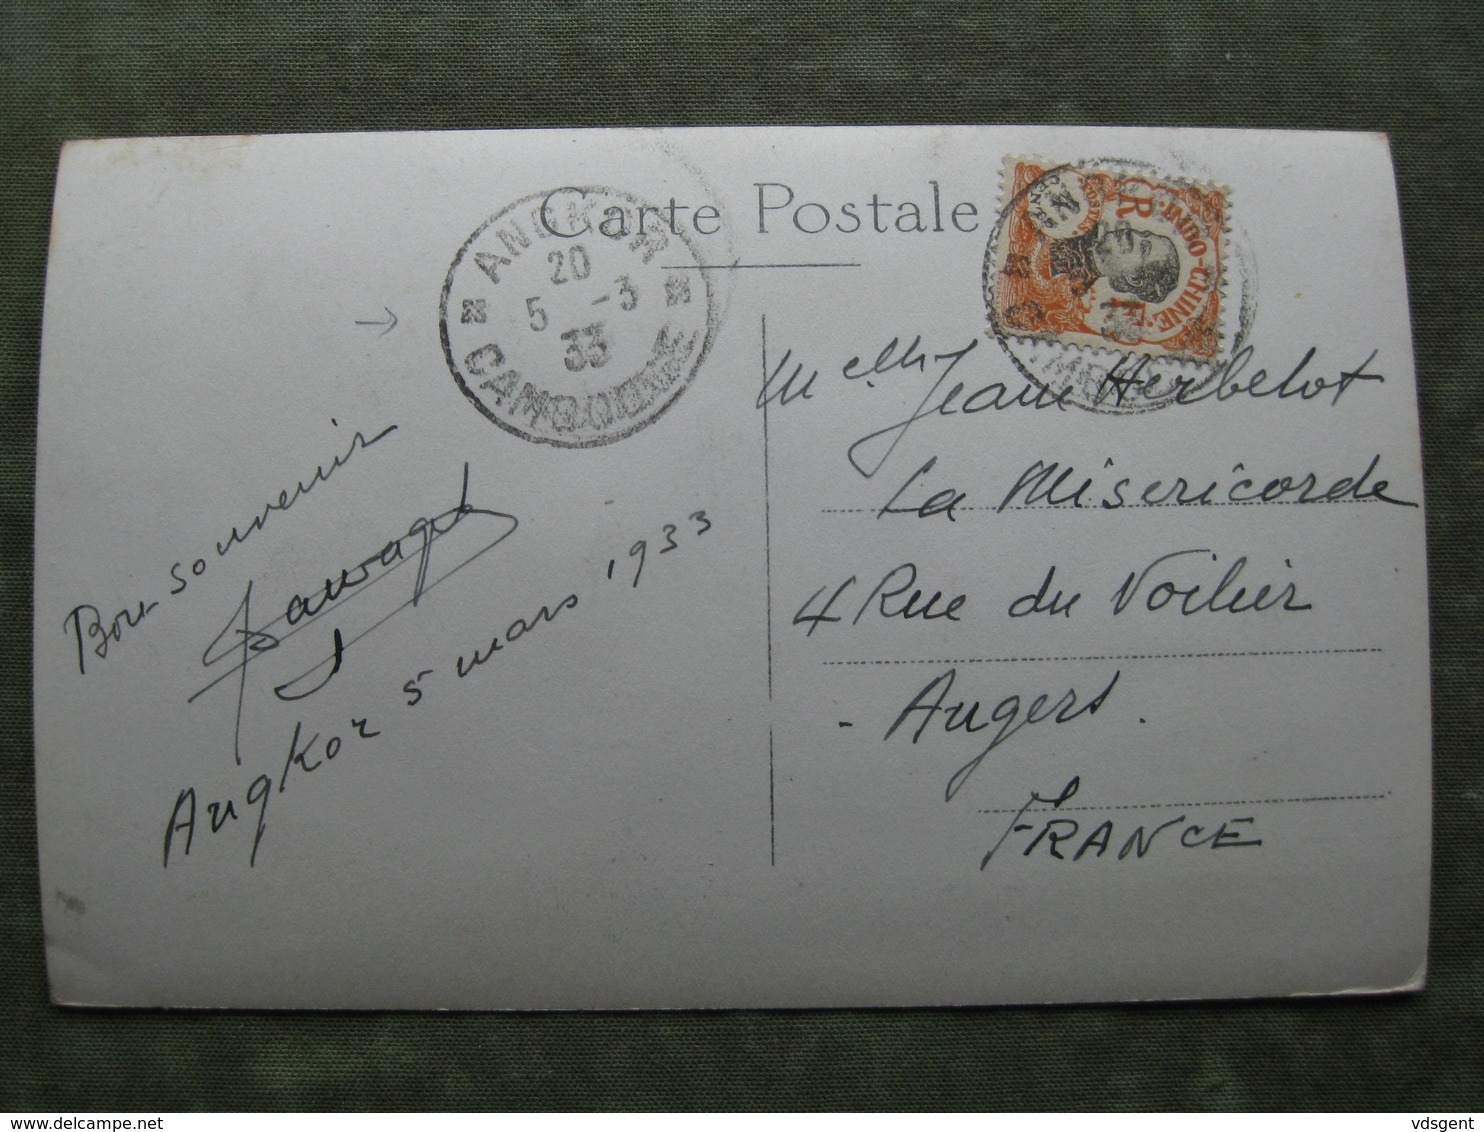 Carte Postale
ANGKOR
20
5 -3
33
CAMBODGE
INDO-CHINE
R F
Bon souvenir
Angkor 5 mars 1933
Jean Herbelot
La Misericorde
4 Rue du Voilier
- Angers.
FRANCE
delcampe.net
vdsgent